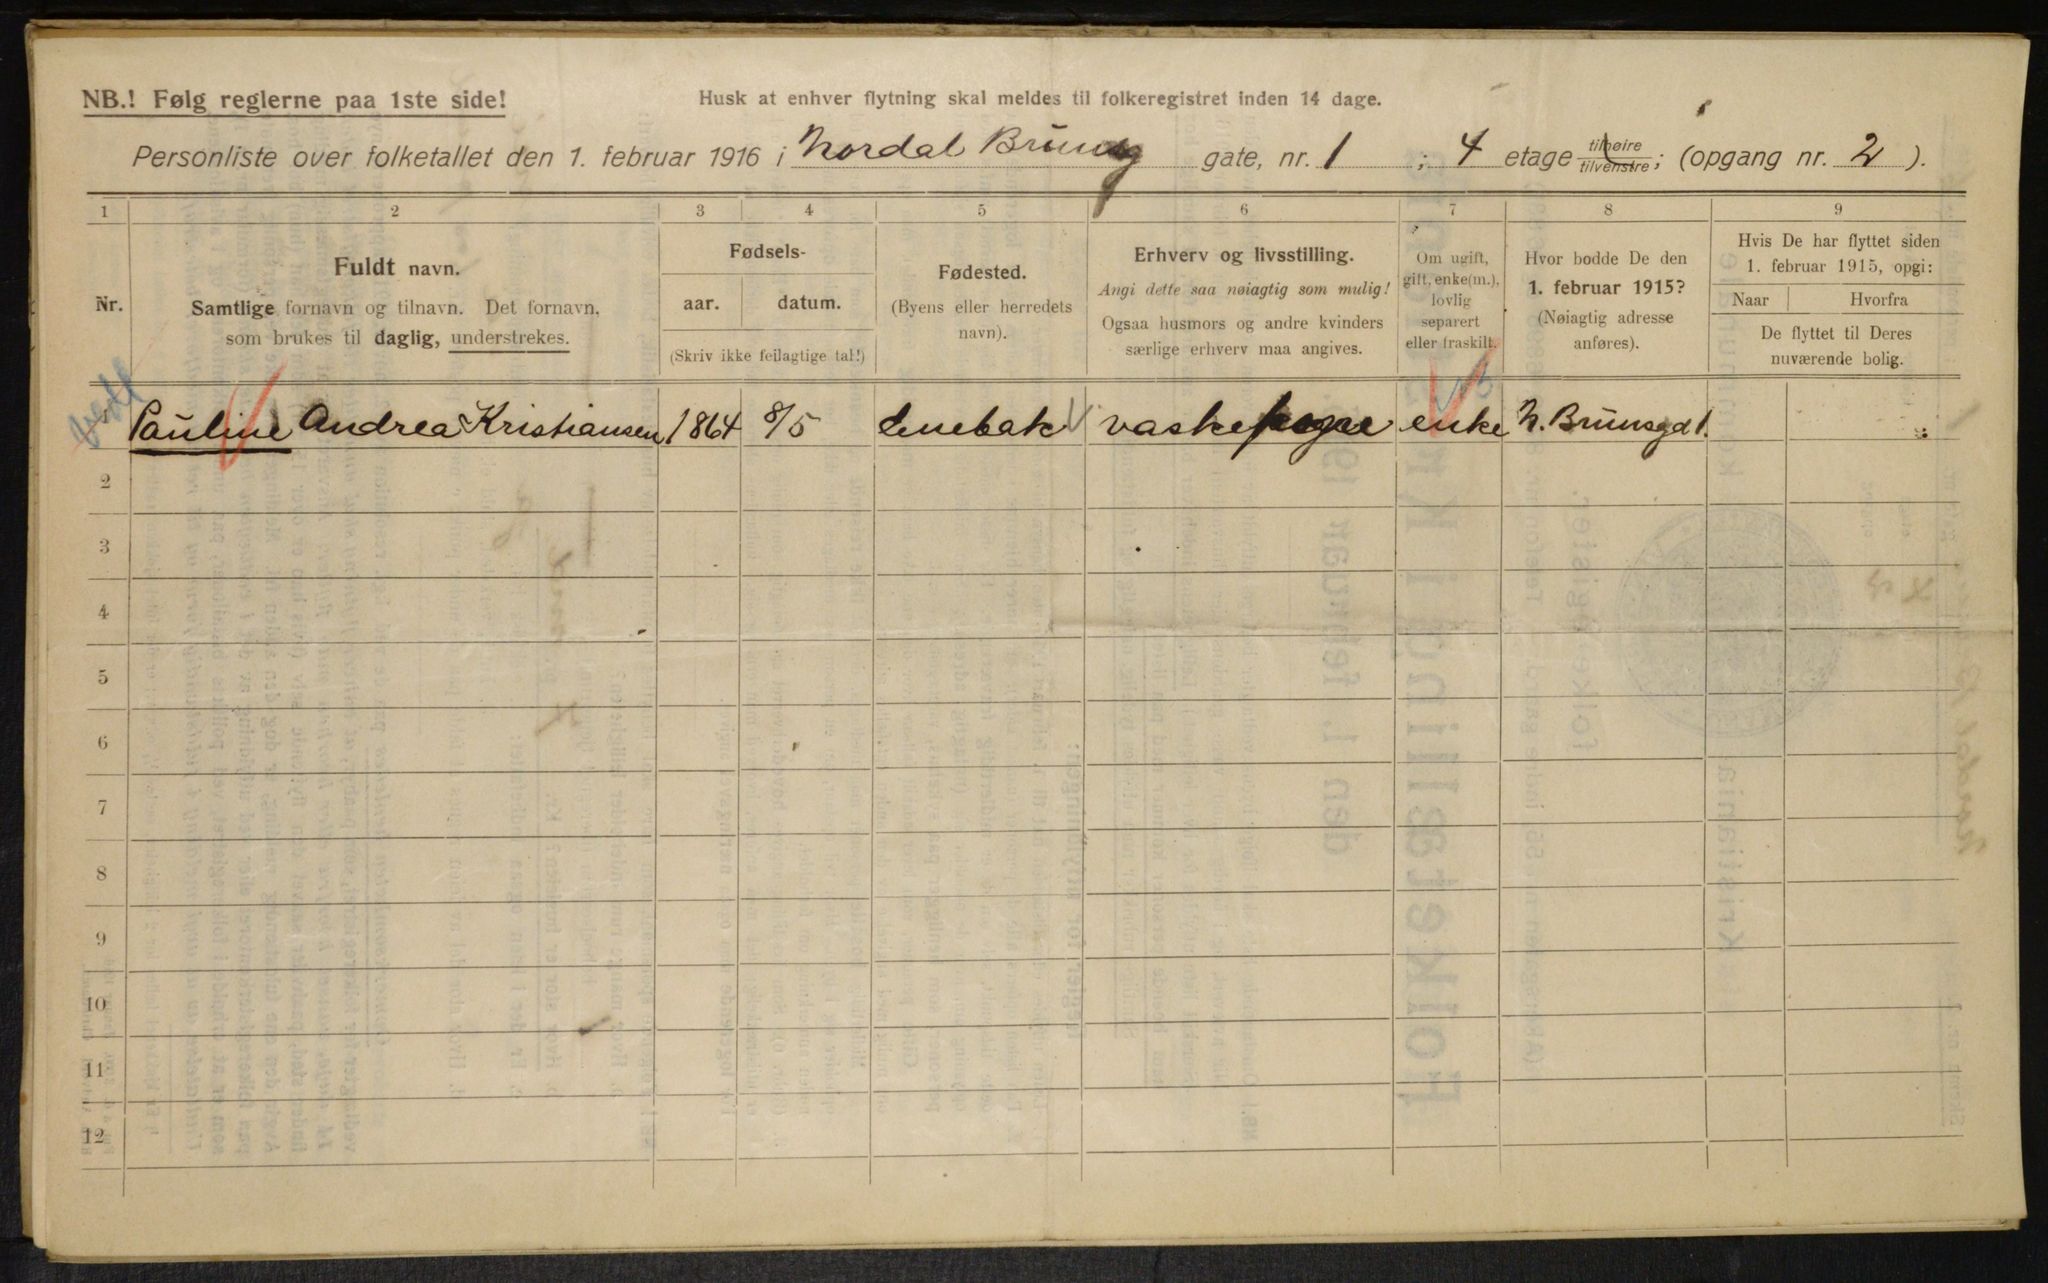 NB.! Følg reglerne paa 1ste side!
Husk at enhver flytning skal meldes til folkeregistret inden 14 dage.
Personliste over folketallet den 1. februar 1916 i Nordal Bruns gate, nr. 1 ; 4 etage tilhøire/tilvenstre; (opgang nr. 2 ).
1 2 3 4 5 6 7 8 9
Nr.
Fuldt navn.
Samtlige fornavn og tilnavn. Det fornavn,
som brukes til daglig, understrekes.
Fødsels-
aar. datum.
(Skriv ikke feilagtige tal!)
Fødested.
(Byens eller herredets
navn).
Erhverv og livsstilling.
Angi dette saa nøiagtig som mulig!
Ogsaa husmors og andre kvinders
særlige erhverv maa angives.
Om ugift,
gift, enke(m.),
lovlig
separert
eller fraskilt.
Hvor bodde De den
1. februar 1915?
(Nøiagtig adresse
anføres).
Hvis De har flyttet siden
1. februar 1915, opgi:
Naar Hvorfra
De flyttet til Deres
nuværende bolig.
1 Pauline Andrea Kristiansen 1864 8/5 Enebak vaskekone enke N. Brunsgd 1.
2
3
4
5
6
7
8
9
10
11
12